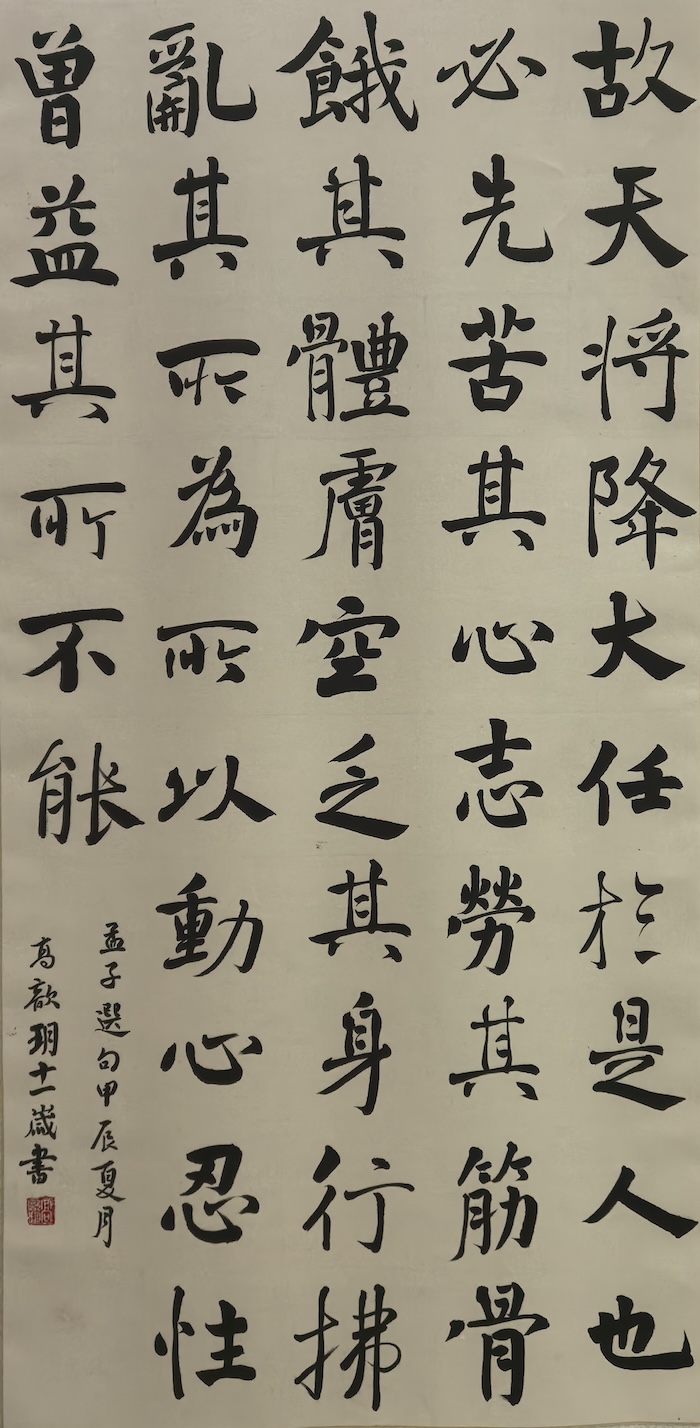 故天将降大任於是人也
必先苦其心志勞其筋骨
餓其體膚空乏其身行拂
亂其所為所以動心忍性
曾益其所不能
孟子選句甲辰夏月
高歆玥十一歲書